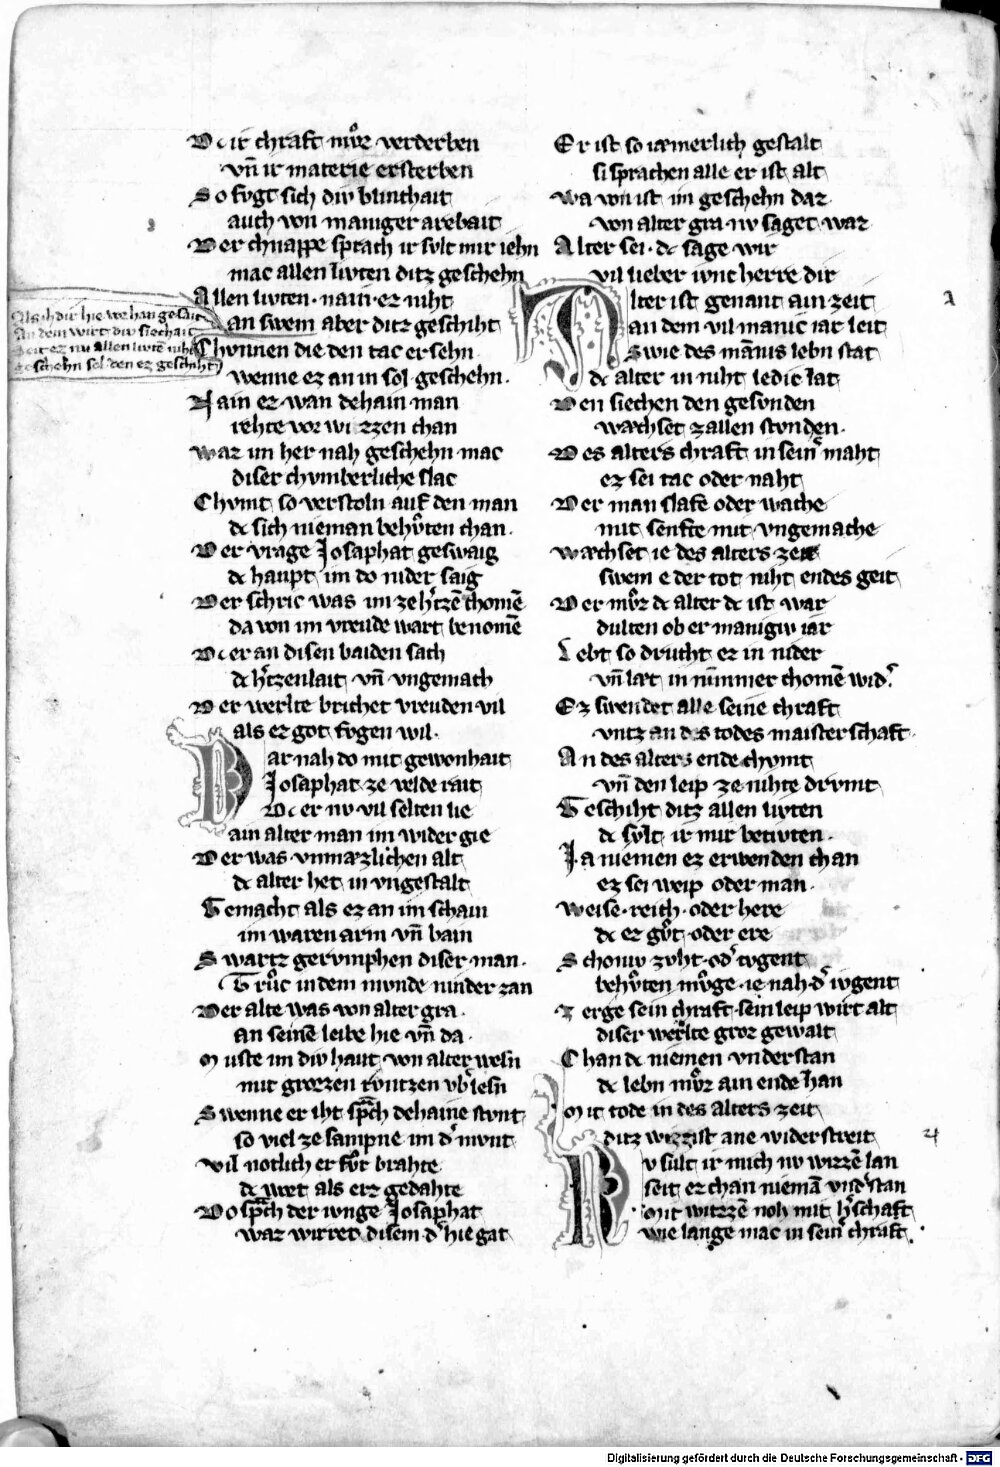 Dc ir chraft mvͦz verderben
vn̄ ir materie ersterben
So fvgt sich div blinthait
auch von maniger arebait
Der chnappe sprach ir svlt mir iehn
mac allen livten ditz geschehn
Allen livten · nain · ez niht
an swem aber ditz geschiht
Als ih dir hie we han gesait
An dem wirt div siechait
Seit ez nu allen livtē niht
geschehn sol · den ez geschiht
Chvnnen die den tac ersehn
wenne ez an in sol geschehn ·
Nain ez · wan dehain man
rehte vor wizzen chan
waz im her nah geschehn mac
diser chvmberliche slac
Chvmt so verstoln auf den man
dc sich nieman behvͤten chan ·
Der vrage Josaphat geswaig
dc haupt im do nider saig
Der schric was im ze h'tzē chomē
da von im vreude wart benomē
Dc er an disen baiden sach
dc h'tzenlait vn̄ vngemach
Der werlte brichet vreuden vil
als ez got fvgen wil ·
Dar nah do mit gewonhait
Josaphat ze velde rait
Dc er nv vil selten lie
ain alter man im wider gie
Der was vnmæzlichen alt
dc alter het in vngestalt
Gemacht als ez an im schain
im waren arm vn̄ bain
Swartz gervmphen diser man ·
Trvͦc in dem mvnde ninder zan
Der alte was von alter gra ·
an seinē leibe hie vn̄ da ·
Mvste im div haut von alter wesn
mit grozzen rvntzen vb' lesn
Swenne er iht sp̄ch dehaine stvnt
so viel ze sampne im d' mvnt
vil notlich er fvͤr brahte
dc wort als erz gedahte
Do sp̄ch der ivnge Josaphat
waz wirret disem d' hie gat
Er ist so iæmerlich gestalt
si sprachen alle er ist alt
wa von ist im geschehn daz ·
von alter gra · nv saget waz
Alter sei · dc sage wir
vil lieber ivnc herre dir
Alter ist genant ain zeit
an dem vil manic iar leit
Swie des mānis lebn stat
dc alter in niht ledic lat
Den siechen den gesvnden
wæchset zallen stvnden ·
Des alters chraft in sein' maht
ez sei tac oder naht
Der man slafe oder wache
mit senfte mit vngemache
wæchset ie des alters zeit
swem e der tot niht endes geit
Der mvͦz dc alter dc ist war
dulten ob er manigiv iar
Lebt so drucht ez in nider
vn̄ læt in nimmer chomē wid'
Ez swendet alle seine chraft
vntz an des todes maisterschaft ·
An des alters ende chvmt
vn̄ den leip ze nihte drvmt
Geschiht ditz allen livten
dc svlt ir mir betivten ·
Ja niemen ez erwenden chan
ez sei weip oder man ·
weise · reich · oder here
dc ez gvͦt · oder ere
Schoniv zvht · od' tvgent
behvͤten mvͤge · ie nah · d' ivgent
Zerge sein chraft · sein leip wirt alt
diser werlte groz gewalt
Chan dc niemen vnderstan
dc lebn mvͦz ain ende han
Mit tode in des alters zeit
ditz wizzist ane widerstreit
Nv sult ir mich nv wizzē lan
seit ez chan niemā vnd'stan
Mit witzzē noh mit h'schaft
wie lange mac in sein' chraft ·
Digitalisierung gefördert durch die Deutsche Forschungsgemeinschaft - DFG